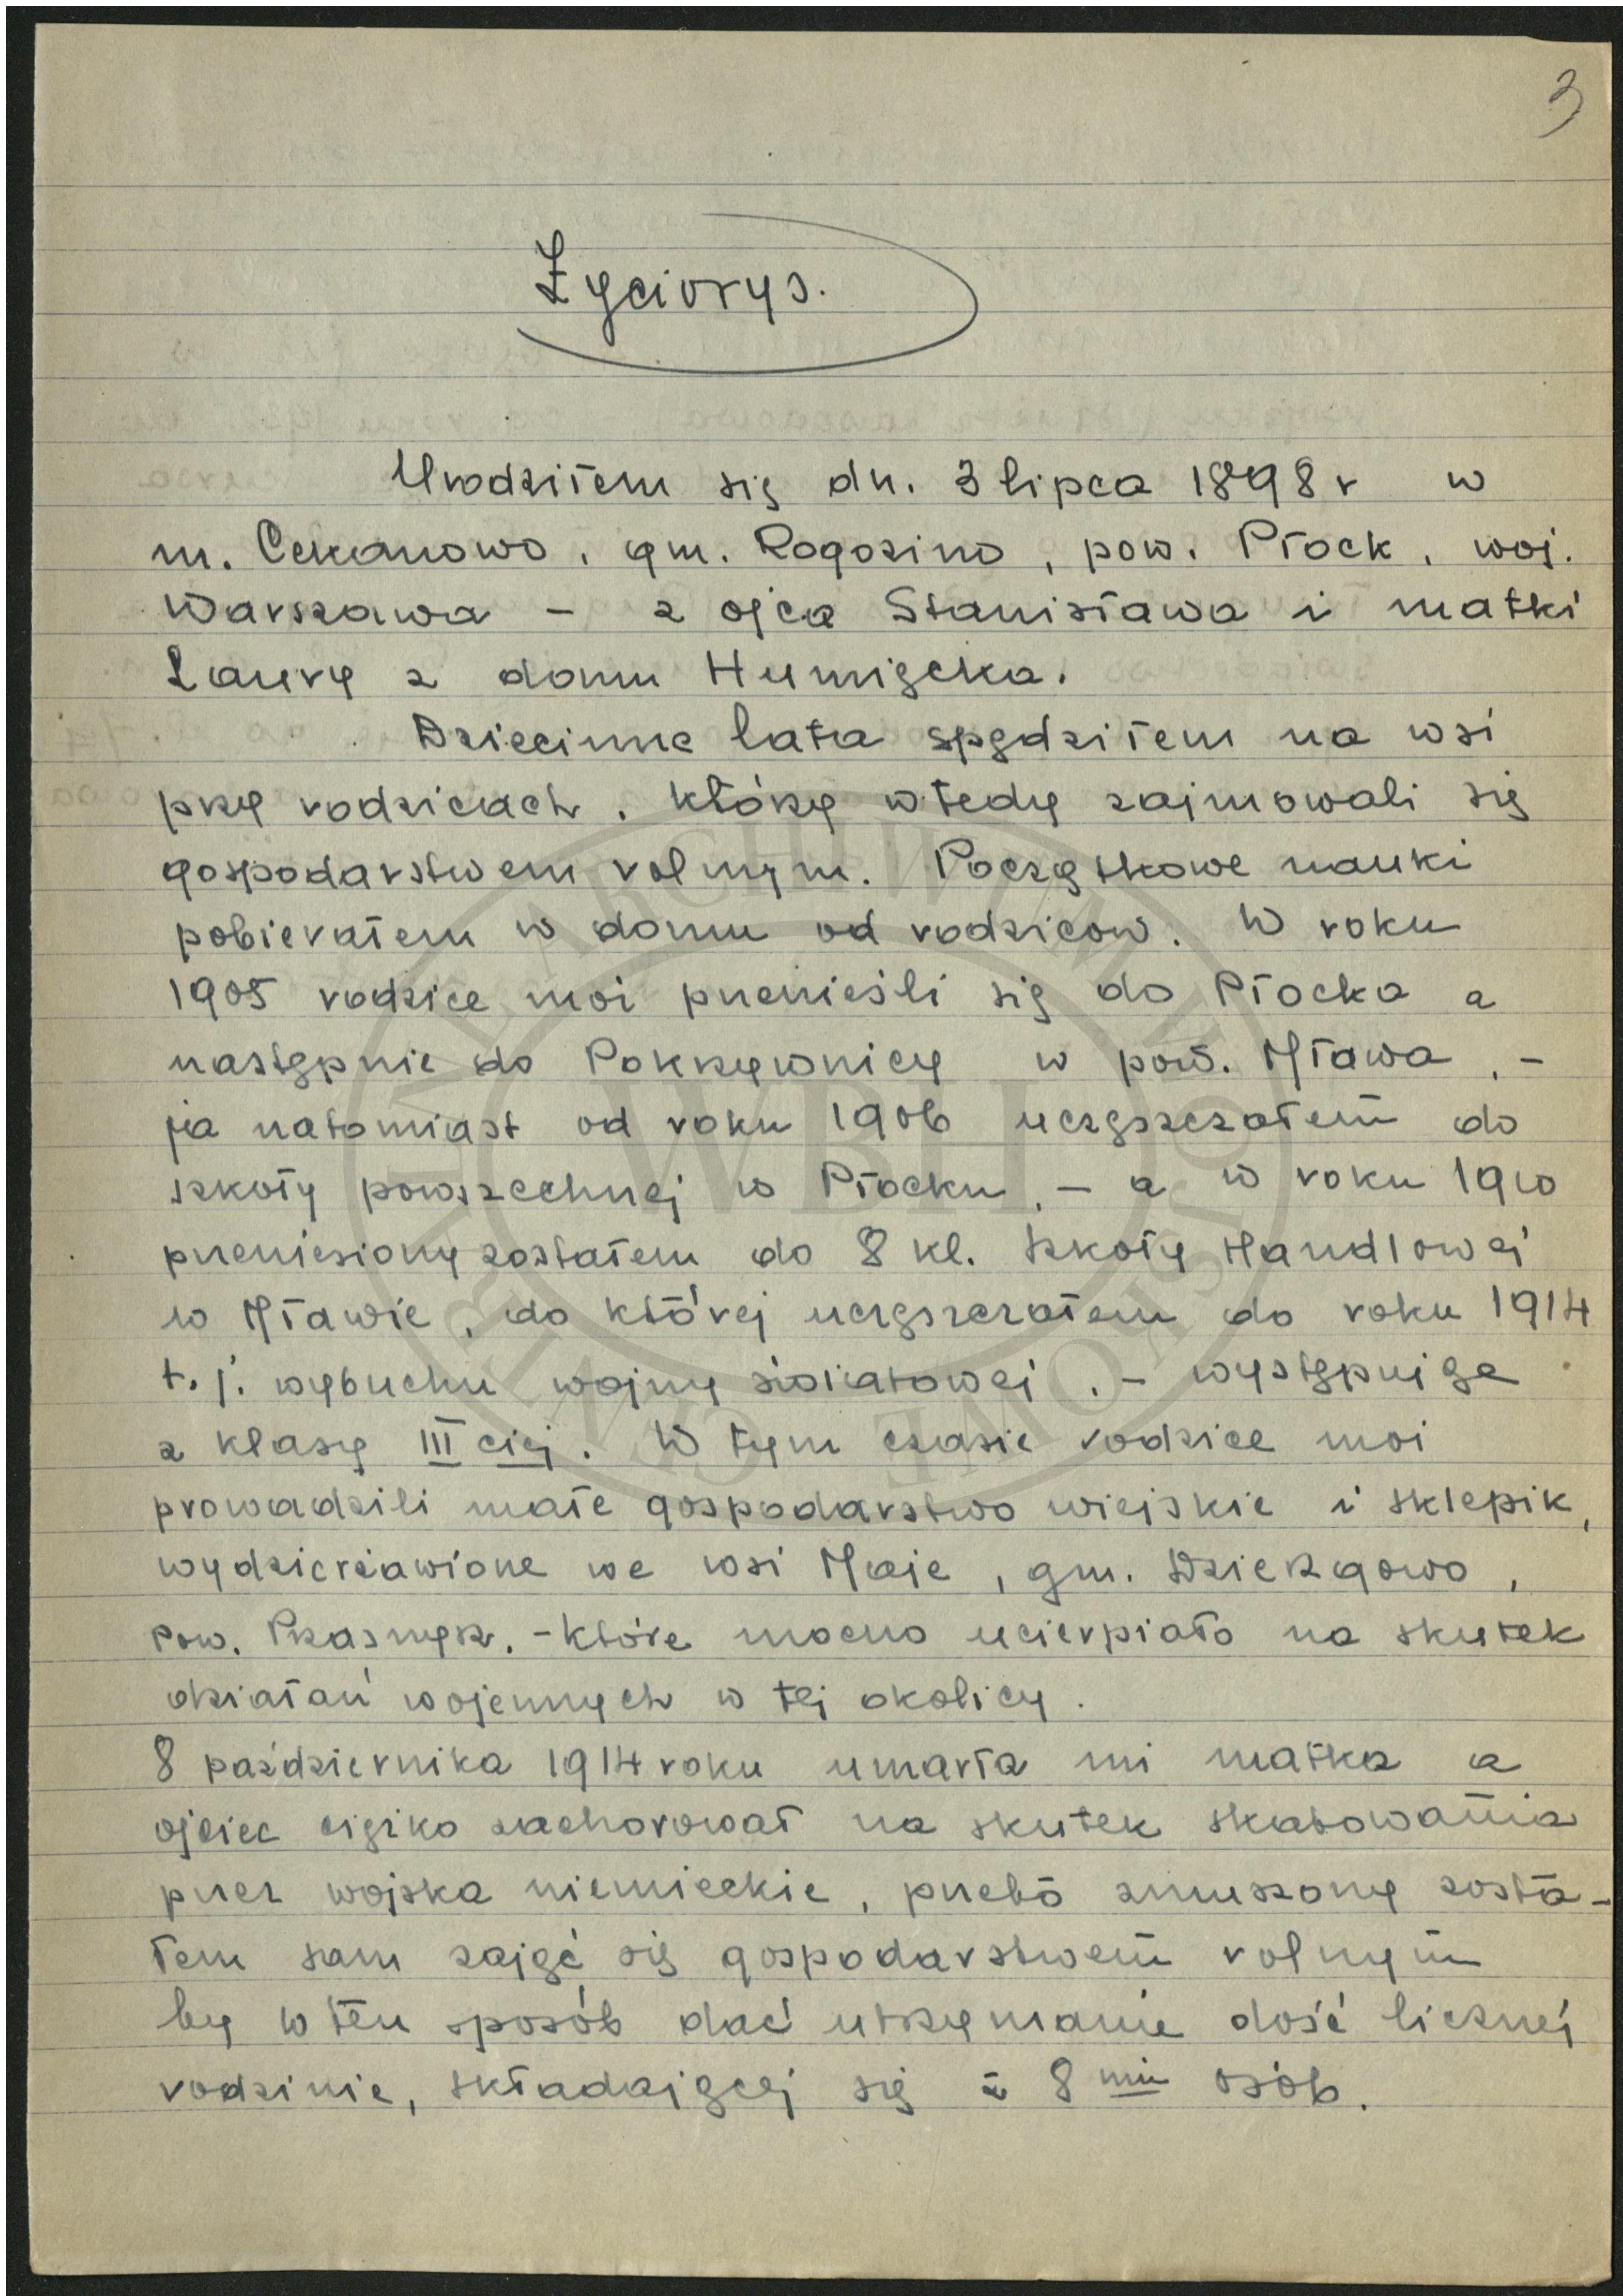 3
Życiorys.
Urodziłem się dn. 3 lipca 1898 r w
m. Cekanowo, gm. Rogozino, pow. Płock, woj.
Warszawa – z ojca Stanisława i matki
Laury z domu Humięcka.
Dziecinne lata spędziłem na wsi
przy rodzicach, którzy wtedy zajmowali się
gospodarstwem rolnym. Początkowe nauki
pobierałem w domu od rodzicow. W roku
1905 rodzice moi przenieśli się do Płocka a
następnie do Pokrzywnicy w pow. Mława, –
ja natomiast od roku 1906 uczęszczałem do
szkoły powszechnej w Płocku, – a w roku 1910
przeniesiony zostałem do 8 kl. Szkoły Handlowej
w Mławie, do której uczęszczałem do roku 1914
t. j. wybuchu wojny światowej, – występując
z klasy III ciej. W tym czasie rodzice moi
prowadzili małe gospodarstwo wiejskie i sklepik,
wydzierżawione we wsi Maje, gm. Dzierzgowo,
pow. Przasnysz, – które mocno ucierpiało na skutek
działań wojennych w tej okolicy.
8 października 1914 roku umarła mi matka a
ojciec ciężko zachorował na skutek skatowania
przez wojska niemieckie, przeto zmuszony zosta-
łem sam zająć się gospodarstwem rolnym
by w ten sposób dać utrzymanie dość licznej
rodzinie, składającej się z 8 miu osób.
WBH